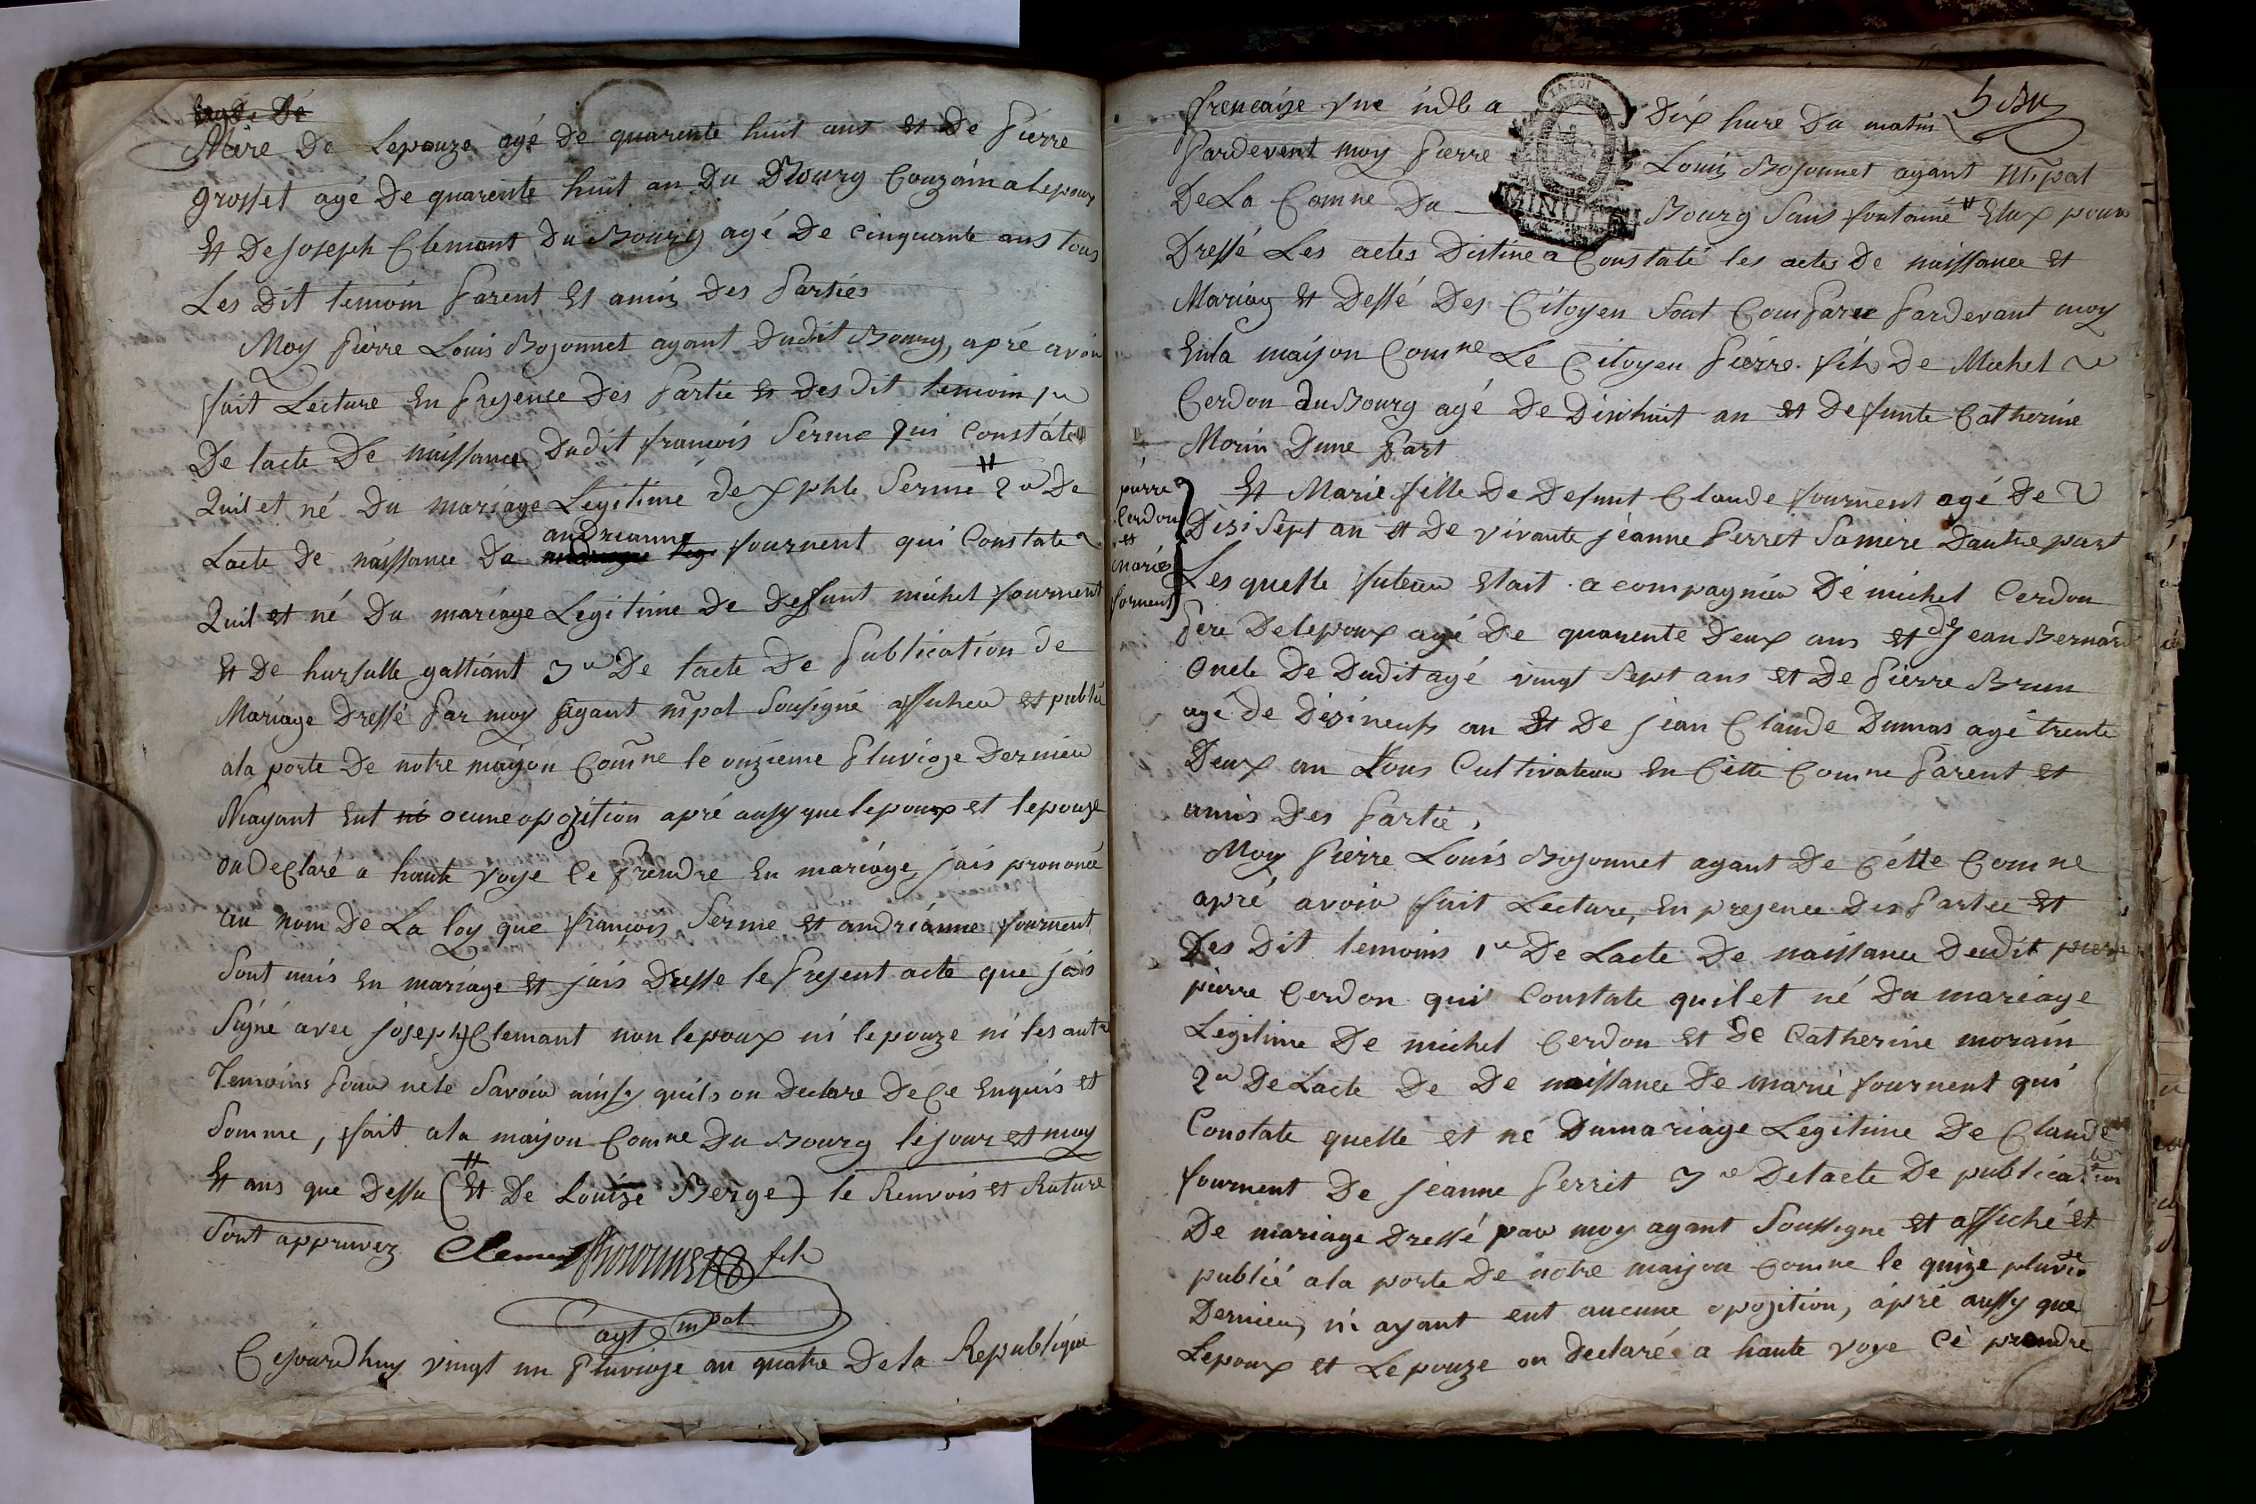 Mère De Lepouze agé De quarente huit ans et De Pierre
grosset agé De quarente huit an Du Bourg Couzain a Lepoux
Et De Joseph Clemant Du Bourg agé De cinquante ans tous
Les Dit temoin Parent Et amis Des Parties
Moy Pierre Louis Bojonnet agant Dudit Bourg, apré avoir
fait Lecture En Presence Des Partie Et Des dit temoin 1e
De lacte De naissance Dudit françois Serme qui constate
Quil et né Du mariage Legitime de Serme # 2e De
Lacte De naissance De andrianne fournent qui Constate
Quil et né Du mariage Legitime De Defunt michel fournent
Et De hursulle gattiant 3e De lacte De Publication de
Mariage Dressé Par moy agant mpal Sousigné affichea et publié
ala porte De notre maison Comne le onzieme Pluvioze Dernier
Niayant Eut ocune opozition apré ausy que lepoux et lepouze
on Declaré a haute voye Ce Prendre En mariage, jais prononcé
au nom De La loy que françois Serme et andrianne fournent
Sont unis En mariage et jais Dresse le Present acte que jais
Signé avec joseph Clemant non lepoux ni lepouze ni les autre
Temoins Pour ne le Savoir ainsy quils on Declare De Ce Enquis et
Somme, fait ala maison Comne Du Bourg le jour et moy
Et ans que Dessu (# Et De Louize Berge) le Renvois et Rature
Sont appruvez Clement Bojonnet fils
agt mpal
Cejourdhuy vingt un Pluvioze an quatre De la Republique
5
françaize vne indb a Dix hure Du matin
Pardevent moy Pierre Louis Bojonnet agant Mpal
De La Comne Du Bourg Sans fontanne # Elux pour
Dressé Les actes Distine a Constaté les actes De naissance et
Mariag Et Dessé Des Citoyen Sont Comparu Pardevant moy
En la maison Comne Le Citoyen Pierre fils De Michel
Cerdon du Bourg agé De Dixhuit an et De funte Catherine
Morin Dune Part
pierre
Cerdon
et
marie
fornent
Et Marie fille De Defunt Claude fournent agé De
Dixi Sept an et De vivante jéanne Perret Sa mere Dautre part
Les quelle futeur Etait acompagnier De michel Cerdon
Pere De lepoux agé De quarente Deux ans et de jean Bernard
oncle De Dudit agé vingt Sept ans et De Pierre Brun
agé de Dezineufs an Et De jean Claude Dumas agé trente
Deux an Tous Cultivateur En Cette Comne Parent et
amis Des Partie,
Moy Pierre Louis Bojonnet agant De Cétte Comne
apré avoir fait Lecture, En presence Des Partie et
Des Dit temoins 1e De Lacte De naissance Dudit pierre
pierre Cerdon qui Constate quil et né Du mariage
Legitime De michel Cerdon et De Catherine morain
2e De Lacte De De naissance De marie fournent qui
Constate quelle et né Du mariage Legitime De Claude
fournent De jéanne Perrit 3e De lacte De publication
De mariage Dressé par moy agant Soussigne et affiché et
publié ala porte De notre maison Comne le quinze pluvioze
Dernier, ni ayant eut aucune opozition, apré aussy que
Lepoux et Lepouze on declaré a haute voye Cé prendre